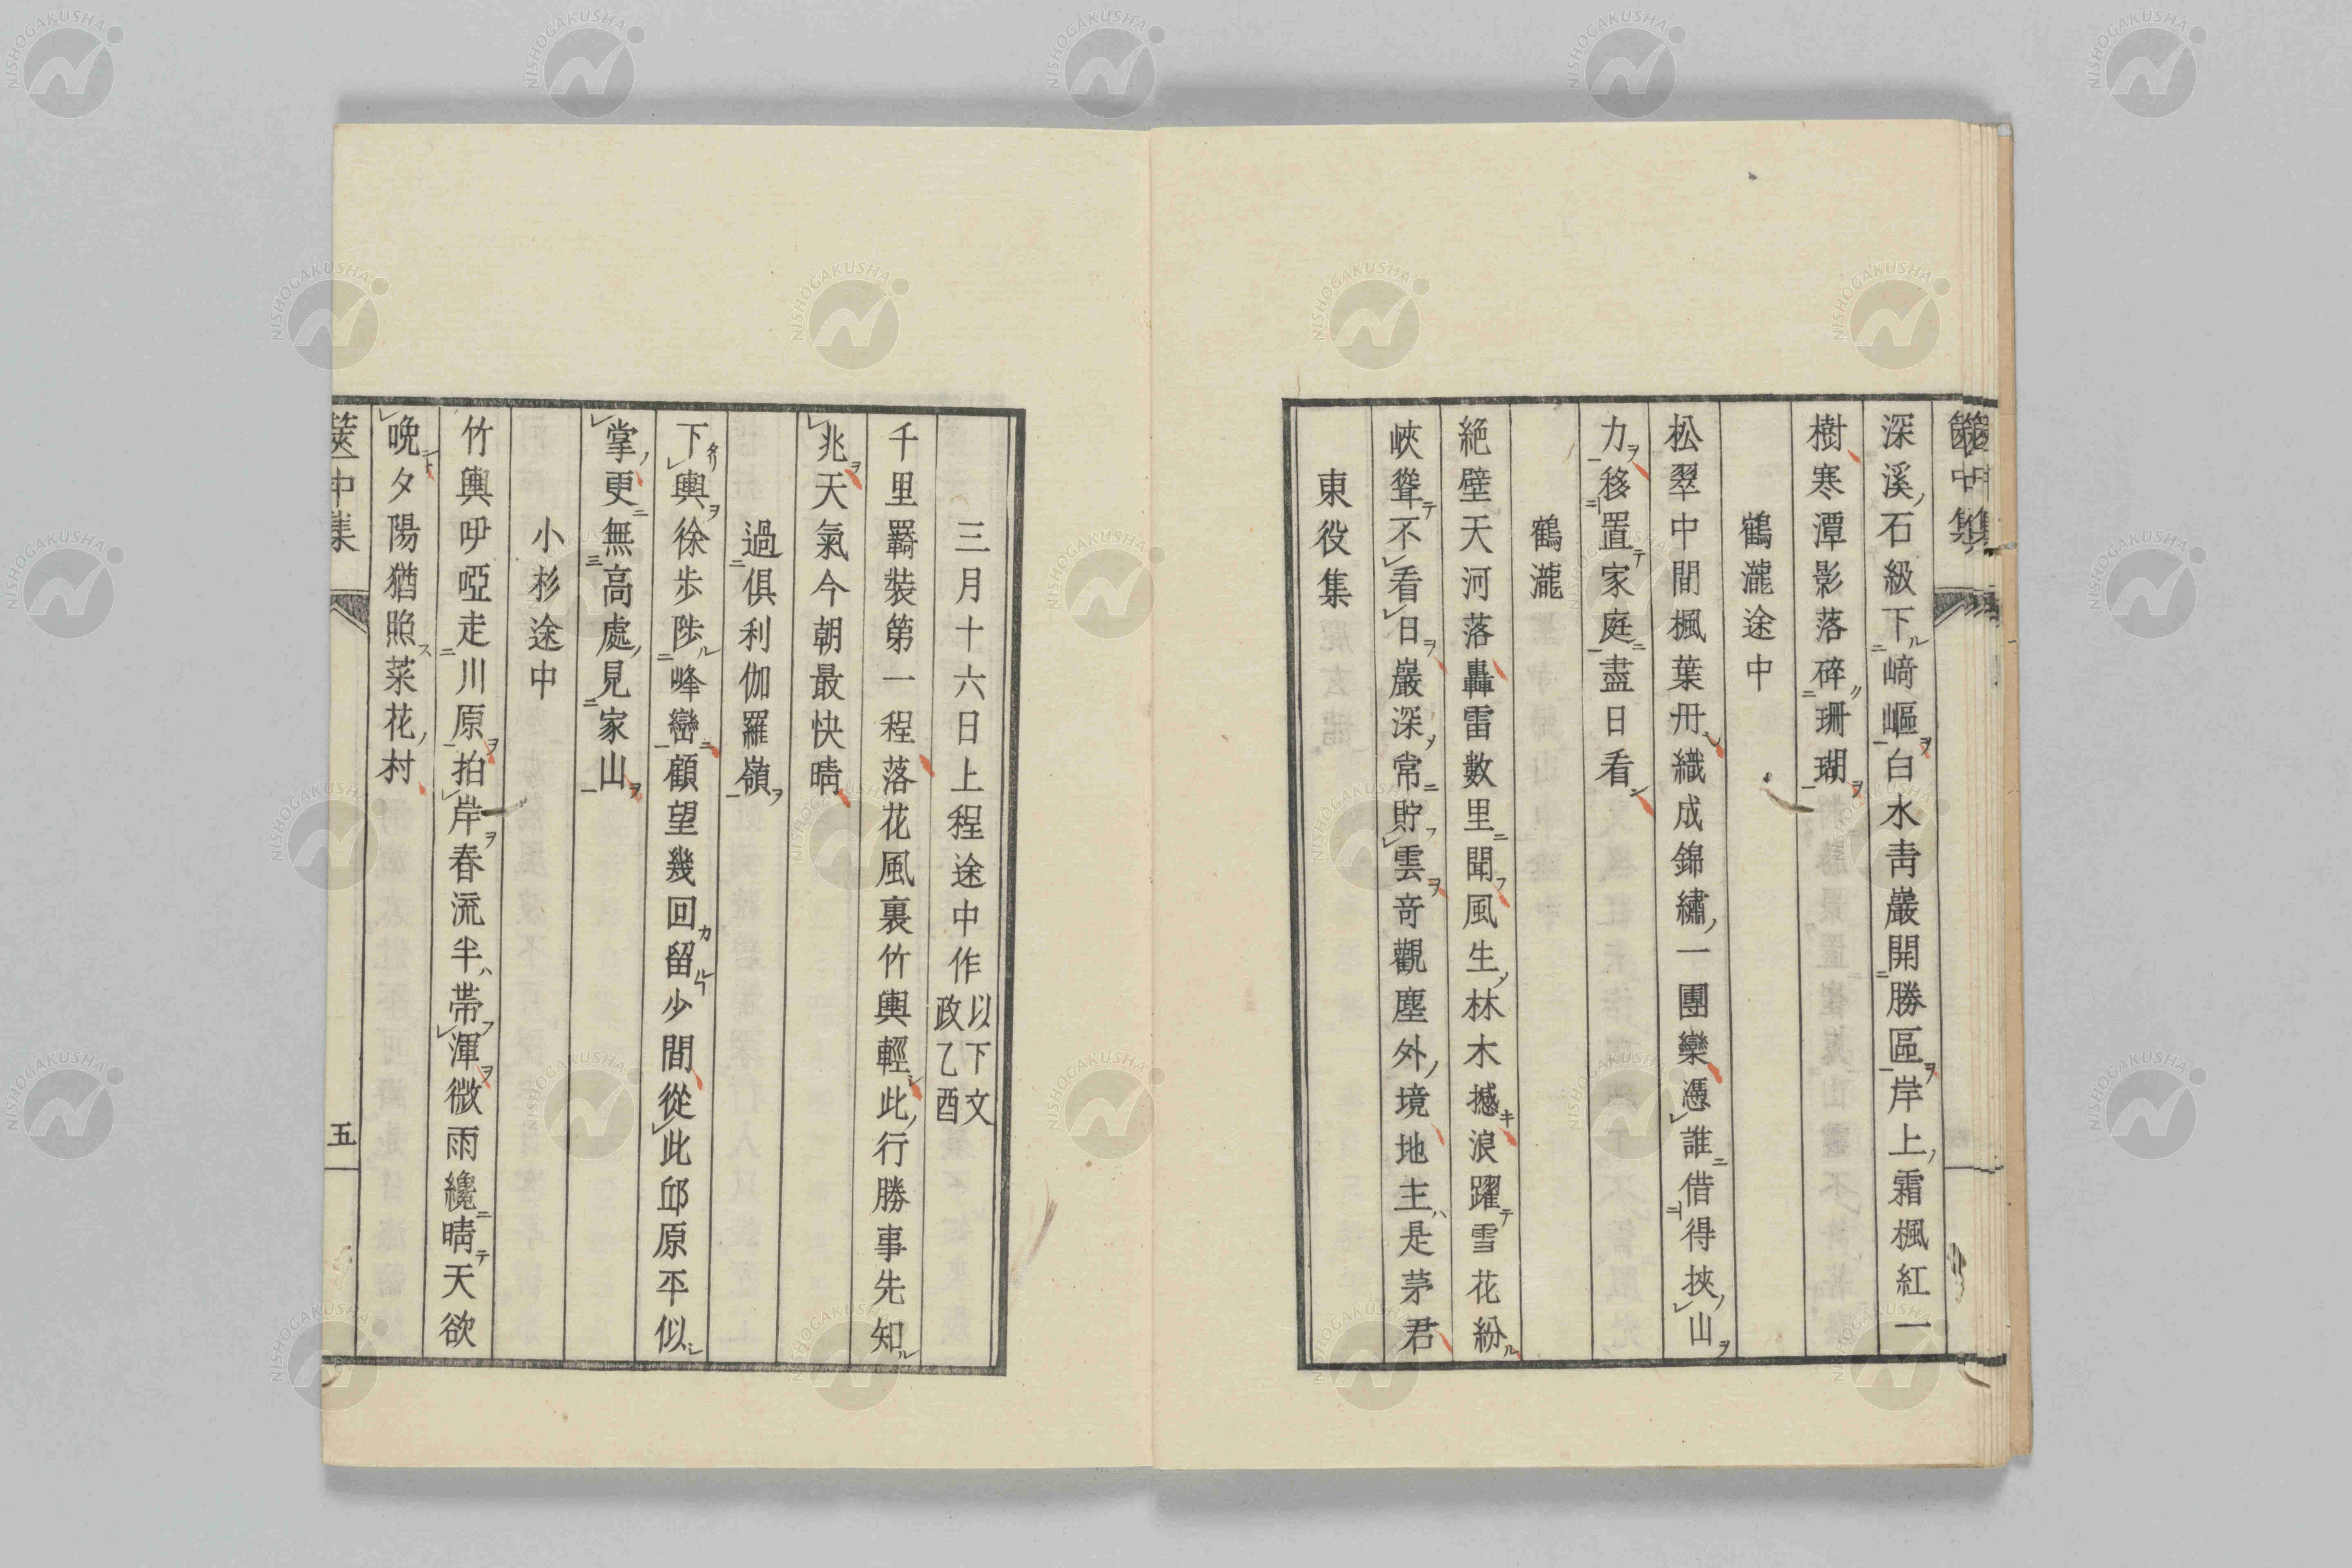 深溪石級下﨑嶇白水青巖開勝區岸上霜楓紅一
樹寒潭影落碎珊瑚
鶴瀧途中
松翠中間楓葉丹織成錦繡一團欒憑誰借得挾山
力移置家庭盡日看
鶴瀧
絶壁天河落轟雷數里聞風生林木撼浪躍雪花紛
峽聳不看日巖深常貯雲竒觀塵外境地主是茅君
東役集
三月十六日上程途中作以下文政乙酉
千里羇裝第一程落花風裏竹輿輕此行勝事先知
兆天氣今朝最快晴
過俱利伽羅嶺
下輿徐歩陟峰巒顧望幾回留少間從此邱原平似
掌更無高處見家山
小杉途中
竹輿吚啞走川原拍岸春流半帶渾微雨纔晴天欲
晩夕陽猶照菜花村
篋中集
五
NISHOGAKUSHA